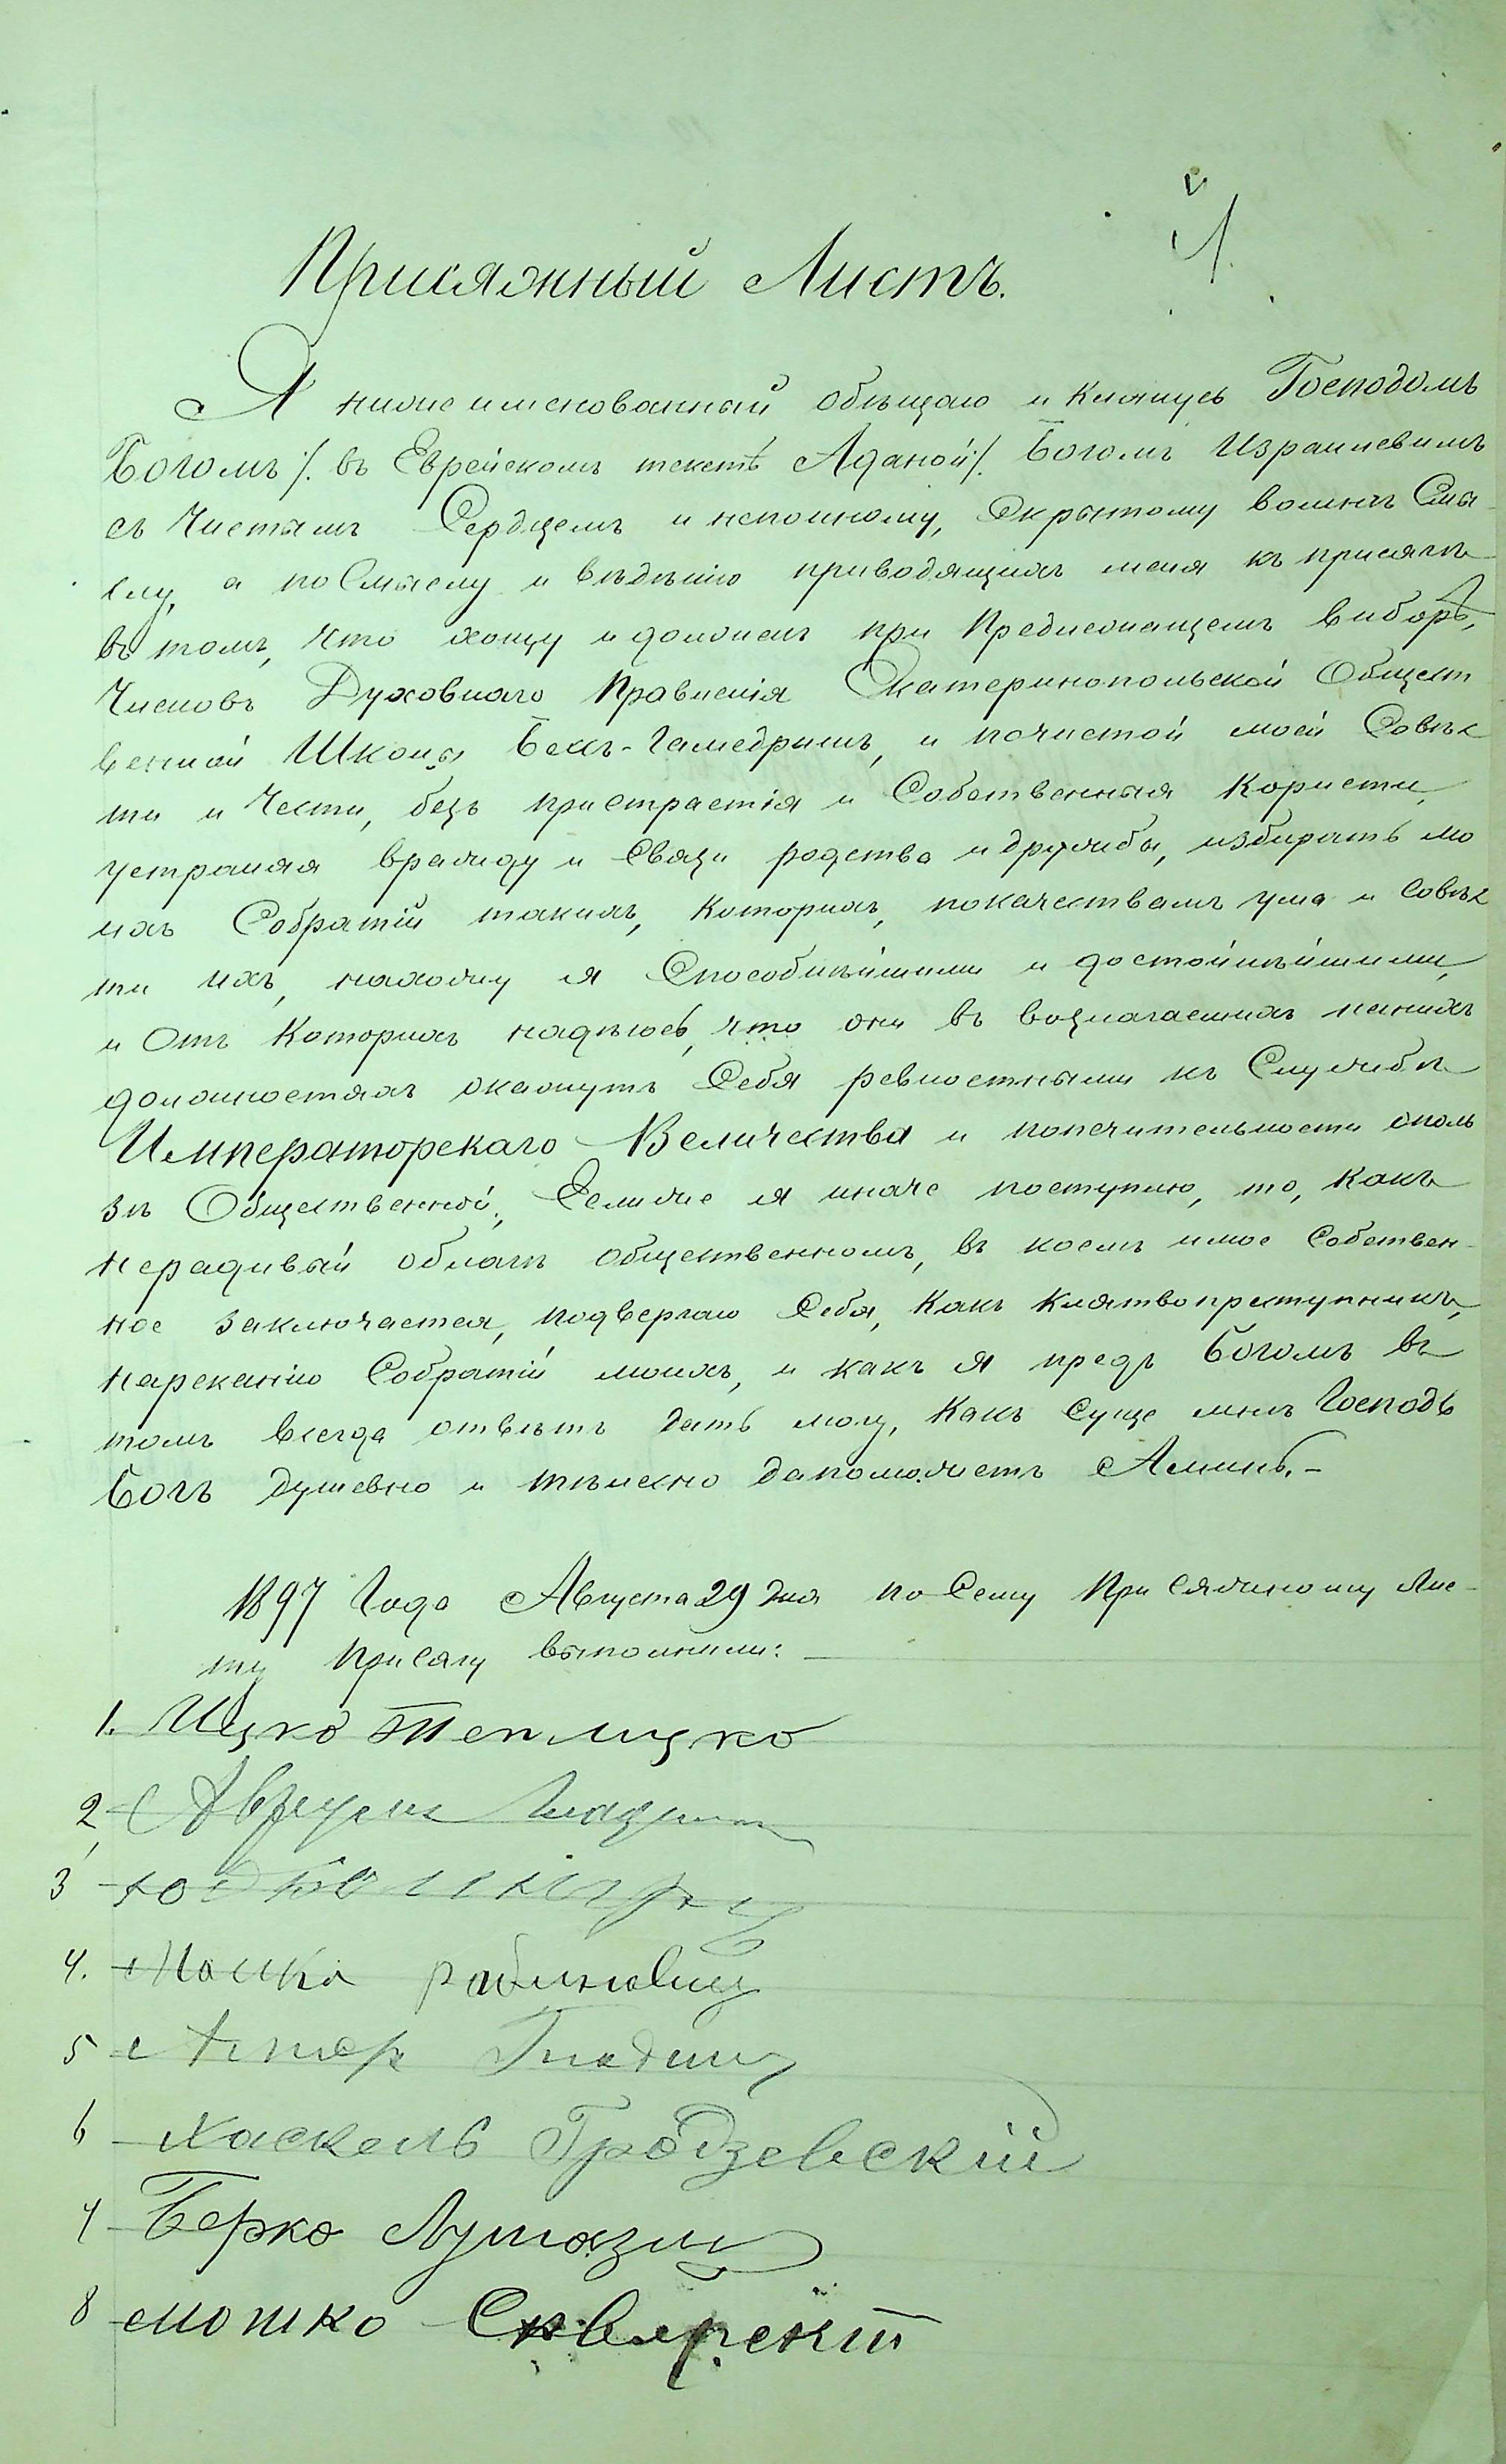 Присяжный Листъ.
Я нижеименованный обѣщаю и клянусь Господомъ
Богомъ /. въ Еврейскомъ текстѣ Аданой /. Богомъ Израилевимъ
съ Чистымъ Сердцемъ и непоиному, Скрытому вомнѣ Смы-
слу, а по Смыслу и вѣдѣнію приводящихъ меня къ присягѣ
въ томъ, что хощу и долженъ при Предлежащемъ виборѣ,
Членовъ Духовнаго Правленія Екатеринопольской Общест
венной Школы Бесъ-Гамедришъ, и почистой моей Совѣс
ти и Чести, безъ пристрастія и Собственныя Користи,
устраняя вражду и Связи родства и дружбы, избирать мо
ихъ Собратій такихъ, Которихъ, покачествамъ ума и Совѣс
ти ихъ, нахожу я Способнѣйшими и достойнѣйшими,
и Отъ Которихъ надѣюсь, что они въ возлагаемихъ нанихъ
должностяхъ окажутъ Себя ревностными къ Службѣ
Императорскаго Величества и попечительности ополь
зѣ Общественной, Еслиже я иначе поступлю, то, Какъ
нерадивый облагѣ общественномъ, въ коемъ имое Собствен-
ное Заключается, подвергаю Себя, Какъ Клятвопреступникъ,
нареканію Собратій моихъ, и какъ я предъ Богомъ въ
томъ всегда отвѣтъ дать могу, Какъ Суще мнѣ Господь
Богъ душевно и тѣлесно дапоможетъ Аминь. -
1897 Года Августа 29 дня по Сему Присяжному Лис-
ту Присягу выполнили:
1. Ицко Теплицко
2
3
4. Мошко рабиновиц
5
6 Хаскель Гродзевскій
7 Берко
8 мошко Сквирскій